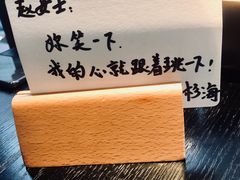 赵女士:
你笑一下.
我的心就跟着跳一下!
杉海